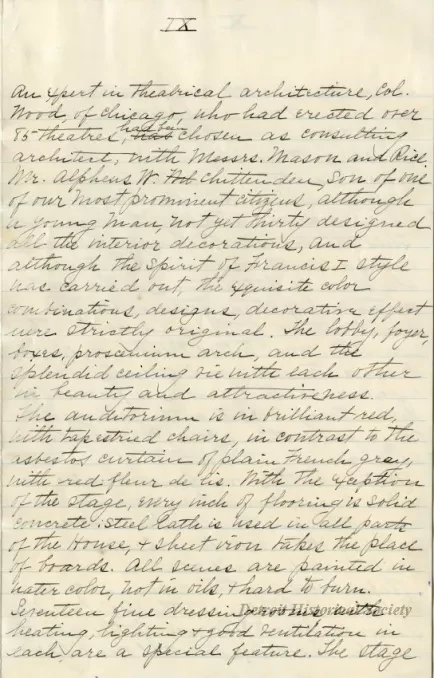 IX
An expert in theatrical architecture, Col.
Wood, of Chicago, who had erected over
85 theatres, had been chosen as consulting
architect, with Messrs. Mason and Rice.
Mr. Alpheus W. Chittenden, Son of one
of our most prominent citizens, although
a young man, not yet thirty designed
all the interior decorations, and
although the Spirit of Francis I style
was carried out, the exquisite color
combinations, designs, decorative effect
were strictly original. The lobby, foyer,
boxes, proscenium arch, and the
splendid ceiling vie with each other
in beauty and attractiveness.
The auditorium is in brilliant red,
with tapestried chairs, in contrast to the
asbestos curtain of plain French gray,
with red fleur de lis. With the exception
of the stage, every inch of flooring is solid
concrete; steel lath is used in all parts
of the House, & sheet iron takes the place
of boards. All scenes are painted in
water color, not in oils, & hard to burn.
Seventeen fine dressing rooms with
Detroit Historical Society
heating, lighting & good ventilation in
each, are a special feature. The stage